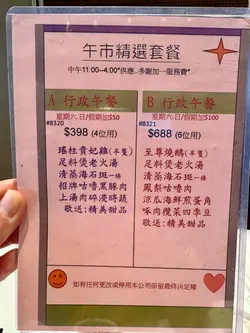 午市精選套餐
中午11:00–4:00*供應..多謝加一服務費*
A 行政午餐
星期六.日/假期加$50
#8320
$398 (4位用)
瑤柱貴妃雞(半隻)
足料煲老火湯
清蒸海石斑 一條
招牌咕嚕黑豚肉
上湯肉碎浸時蔬
敬送:精美甜品
B 行政午餐
星期六.日/假期加$100
#8321
$688 (6位用)
至尊燒鵝(半隻)
足料煲老火湯
清蒸海石斑(一條)
鳳梨咕嚕肉
涼瓜海鮮煎蛋角
啫肉欖菜四季豆
敬送:精美甜品
如有任何更改或停用本公司保留最終決定權